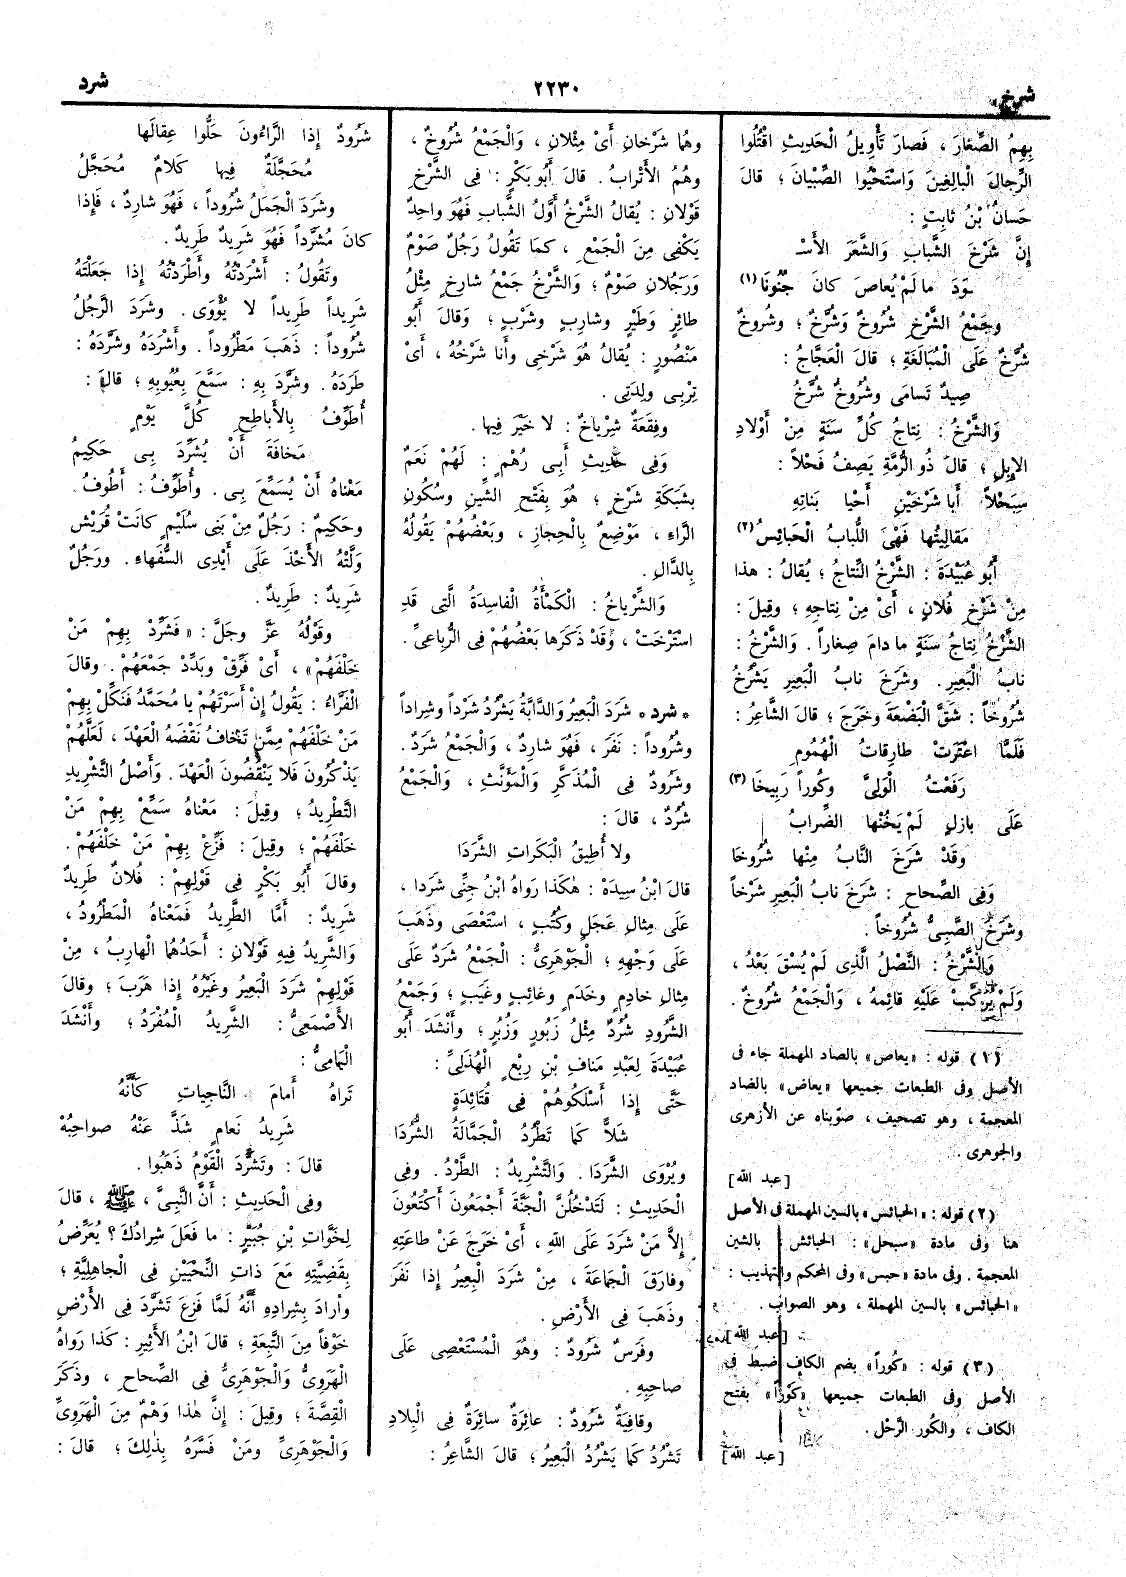 شرخ
٢٢٣٠
شرد
بِهِمُ الصِّغَارَ ، فَصارَ تَأْوِيلُ الْحَدِيثِ اقْتُلُوا
الرِّجالَ الْبالِغِينَ وَاسْتَحْيُوا الصِّبْيانَ ؛ قالَ
حَسانُ بْنُ ثابِتٍ :
إِنَّ شَرْخَ الشَّبابِ وَالشَّعَرَ الأَسْـ
ـوَدَ ما لَمْ يُعاصَ كانَ جُنُونَا (١)
وَجَمْعُ الشَّرْخِ شُرُوخٌ وَشُرَّخٌ ؛ وشُروخٌ
شُرَّخٌ عَلَى الْمُبَالَغَةِ ؛ قالَ الْعَجَّاجُ :
صِيدٌ تَسامَى وشُرُوخٌ شُرَّخُ
وَالشَّرْخُ : نِتاجُ كُلِّ سَنَةٍ مِنْ أَوْلادِ
الإِبِلِ ؛ قالَ ذُو الرُّمَّةِ يَصِفُ فَحْلاً :
سِبَحْلاً أَبا شَرْخَيْنِ أَحْيا بَناتِهِ
مَقالِيتُها فَهْىَ اللُّبابُ الْحَبائِسُ (٢)
أَبُو عُبَيْدَةَ : الشَّرْخُ النِّتاجُ ؛ يُقالُ : هذا
مِنْ شَرْخِ فُلانٍ ، أَىْ مِنْ نِتاجِهِ ؛ وقِيلَ :
الشَّرْخُ نِتاجُ سَنَةٍ ما دامَ صِغاراً . وَالشَّرْخُ :
نابُ الْبَعِيرِ . وشَرَخَ نابُ الْبَعِيرِ يَشْرُخُ
شُرُوخاً : شَقَّ الْبَضْعَةَ وخَرَجَ ؛ قالَ الشَّاعِرُ :
فَلَمَّا اعْتَرَتْ طارِقاتُ الْهُمُومِ
رَفَعْتُ الْوَلِىَّ وكُوراً رَبِيخَا (٣)
عَلَى بازِلٍ لَمْ يَخُنْها الضِّرابُ
وقَدْ شَرَخَ النَّابُ مِنْها شُرُوخَا
وَفِى الصِّحاحِ : شَرَخَ نابُ الْبَعِيرِ شَرْخاً
وشَرَخَ الصَّبِىُّ شُرُوخاً .
وَالشَّرْخُ : النَّصْلُ الَّذِى لَمْ يُسْقَ بَعْدُ ،
وَلَمْ يُرَكَّبْ عَلَيْهِ قائِمُهُ ، وَالْجَمْعُ شُرُوخٌ .
(١) قوله : «يعاص» بالصاد المهملة جاء فى
الأصل وفى الطبعات جميعها «يعاض» بالضاد
المعجمة ، وهو تصحيف ، صوّبناه عن الأزهرى
والجوهرى .
[عبد الله]
(٢) قوله : «الحبائس» بالسين المهملة فى الأصل
هنا وفى مادة «سبحل» : الحبائش بالشين
المعجمة . وفى مادة «حبس» وفى المحكم والتهذيب :
«الحبائس» بالسين المهملة ، وهو الصواب .
[عبد الله]
(٣) قوله : «كُوراً» بضم الكاف ضبط فى
الأصل وفى الطبعات جميعها «كَوْراً» بفتح
الكاف ، والكُور الرَّحْل .
[عبد الله]
وهُما شَرْخانِ أَىْ مِثْلانِ ، وَالْجَمْعُ شُرُوخٌ ،
وهُمُ الأَتْرابُ . قالَ أَبُو بَكْرٍ : فِى الشَّرْخِ
قَوْلانِ : يُقالُ الشَّرْخُ أَوَّلُ الشَّبابِ فَهُوَ واحِدٌ
يَكْفِى مِنَ الْجَمْعِ ، كَما تَقُولُ رَجُلٌ صَوْمٌ
وَرَجُلانِ صَوْمٌ ؛ وَالشَّرْخُ جَمْعُ شارِخٍ مِثْلُ
طائِرٍ وَطَيْرٍ وشارِبٍ وشَرْبٍ ؛ وَقالَ أَبُو
مَنْصُورٍ : يُقالُ هُوَ شَرْخِى وأَنا شَرْخُهُ ، أَىْ
تِرْبِى ولِدَتِى .
وفِقَعَةٌ شِرْياخٌ : لا خَيْرَ فِيها .
وَفِى حَدِيثِ أَبِى رُهْمٍ : لَهُمْ نَعَمٌ
بِشَبَكَةِ شَرْخٍ ؛ هُوَ بِفَتْحِ الشِّينِ وسُكُونِ
الرَّاءِ ، مَوْضِعٌ بِالْحِجازِ ، وبَعْضُهُمْ يَقُولُهُ
بِالدَّالِ .
وَالشِّرْياخُ : الْكَمْأَةُ الْفاسِدَةُ الَّتِى قَدِ
اسْتَرْخَتْ ، وَقَدْ ذَكَرَها بَعْضُهُمْ فِى الرُّباعِىِّ .
* شرد * شَرَدَ الْبَعِيرُ وَالدَّابَّةُ يَشْرُدُ شَرْداً وشِراداً
وشُرُوداً : نَفَرَ ، فَهُوَ شارِدٌ ، وَالْجَمْعُ شَرَدٌ .
وشَرُودٌ فِى الْمُذَكَّرِ وَالْمُؤَنَّثِ ، وَالْجَمْعُ
شُرُدٌ ، قالَ :
ولا أُطِيقُ الْبَكَراتِ الشَّرَدَا
قالَ ابْنُ سِيدَهْ : هٰكَذا رَواهُ ابْنُ جِنِّى شَرَدا ،
عَلَى مِثالِ عَجَلٍ وكُتُبٍ ، اسْتَعْصَى وذَهَبَ
عَلَى وَجْهِهِ ؛ الْجَوْهَرِىُّ : الْجَمْعُ شَرَدٌ عَلَى
مِثالِ خادِمٍ وخَدَمٍ وغائِبٍ وغَيَبٍ ؛ وَجَمْعُ
الشَّرُودِ شُرُدٌ مِثْلُ زَبُورٍ وَزُبُرٍ ؛ وأَنْشَدَ أَبُو
عُبَيْدَةَ لِعَبْدِ مَنافِ بْنِ رِبْعٍ الْهُذَلِىِّ :
حَتَّى إِذا أَسْلَكُوهُمْ فِى قُتائِدَةٍ
شَلاًّ كَما تَطْرُدُ الْجَمَّالَةُ الشُّرُدَا
ويُرْوَى الشَّرَدَا . وَالتَّشْرِيدُ : الطَّرْدُ . وفِى
الْحَدِيثِ : لَتَدْخُلُنَّ الْجَنَّةَ أَجْمَعُونَ أَكْتَعُونَ
إِلاَّ مَنْ شَرَدَ عَلَى اللهِ ، أَىْ خَرَجَ عَنْ طاعَتِهِ
وفارَقَ الْجَمَاعَةَ ، مِنْ شَرَدَ الْبَعِيرُ إِذا نَفَرَ
وذَهَبَ فِى الأَرْضِ .
وفَرَسٌ شَرُودٌ : وهُوَ الْمُسْتَعْصِى عَلَى
صاحِبِهِ .
وقافِيَةٌ شَرُودٌ : عائِرَةٌ سائِرَةٌ فِى الْبِلادِ
تَشْرُدُ كَما يَشْرُدُ الْبَعِيرُ ؛ قالَ الشَّاعِرُ :
شَرُودٌ إِذا الرَّاءُونَ حَلُّوا عِقالَها
مُحَجَّلَةٌ فِيها كَلامٌ مُحَجَّلُ
وشَرَدَ الْجَمَلُ شُرُوداً ، فَهُوَ شارِدٌ ، فَإِذا
كانَ مُشَرَّداً فَهُوَ شَرِيدٌ طَرِيدٌ .
وتَقُولُ : أَشْرَدْتُهُ وأَطْرَدْتُهُ إِذا جَعَلْتَهُ
شَرِيداً طَرِيداً لا يُؤْوَى . وشَرَدَ الرَّجُلُ
شُرُوداً : ذَهَبَ مَطْرُوداً . وأَشْرَدَهُ وشَرَّدَهُ :
طَرَدَهُ . وشَرَّدَ بِهِ : سَمَّعَ بِعُيُوبِهِ ؛ قالَ :
أُطَوِّفُ بِالأَباطِحِ كُلَّ يَوْمٍ
مَخافَةَ أَنْ يُشَرِّدَ بِى حَكِيمُ
مَعْناهُ أَنْ يُسَمِّعَ بِى . وأُطَوِّفُ : أَطُوفُ .
وحَكِيمٌ : رَجُلٌ مِنْ بَنِى سُلَيْمٍ كانَتْ قُرَيْش
وَلَّتْهُ الأَخْذَ عَلَى أَيْدِى السُّفَهاءِ . ورَجُلٌ
شَرِيدٌ : طَرِيدٌ .
وقَوْلُهُ عَزَّ وجَلَّ : «فَشَرِّدْ بِهِمْ مَنْ
خَلْفَهُمْ» ، أَىْ فَرِّقْ وبَدِّدْ جَمْعَهُمْ . وقالَ
الْفَرَّاءُ : يَقُولُ إِنْ أَسَرْتَهُمْ يا مُحَمَّدُ فَنَكِّلْ بِهِمْ
مَنْ خَلْفَهُمْ مِمَّنْ تَخافُ نَقْضَهُ الْعَهْدَ ، لَعَلَّهُمْ
يَذْكُرُونَ فَلا يَنْقُضُونَ الْعَهْدَ . وَأَصْلُ التَّشْرِيدِ
التَّطْرِيدُ ؛ وقِيلَ : مَعْناهُ سَمِّعْ بِهِمْ مَنْ
خَلْفَهُمْ ؛ وقِيلَ : فَزِّعْ بِهِمْ مَنْ خَلْفَهُمْ .
وقالَ أَبُو بَكْرٍ فِى قَوْلِهِمْ : فُلانٌ طَرِيدٌ
شَرِيدٌ : أَمَّا الطَّرِيدُ فَمَعْناهُ الْمَطْرُودُ ،
وَالشَّرِيدُ فِيهِ قَوْلانِ : أَحَدُهُما الْهارِبُ ، مِنْ
قَوْلِهِمْ شَرَدَ الْبَعِيرُ وغَيْرُهُ إِذا هَرَبَ ؛ وقالَ
الأَصْمَعِىُّ : الشَّرِيدُ الْمُفْرَدُ ؛ وأَنْشَدَ
الْيَمامِىُّ :
تَراهُ أَمامَ النَّاجِياتِ كَأَنَّهُ
شَرِيدُ نَعامٍ شَذَّ عَنْهُ صواحِبُهْ
قالَ : وتَشَرَّدَ الْقَوْمُ ذَهَبُوا .
وفِى الْحَدِيثِ : أَنَّ النَّبِىَّ ، ﷺ ، قالَ
لِخَوَّاتِ بْنِ جُبَيْرٍ : ما فَعَلَ شِرادُكَ ؟ يُعَرِّضُ
بِقَضِيَّتِهِ مَعَ ذاتِ النِّحْيَيْنِ فِى الْجاهِلِيَّةِ ؛
وأَرادَ بِشِرادِهِ أَنَّهُ لَمَّا فَزِعَ تَشَرَّدَ فِى الأَرْضِ
خَوْفاً مِنَ التَّبِعَةِ ؛ قالَ ابْنُ الأَثِيرِ : كَذا رَواهُ
الْهَرَوِىُّ وَالْجَوْهَرِىُّ فِى الصِّحاحِ ، وذَكَرَ
الْقِصَّةَ ؛ وقِيلَ : إِنَّ هٰذا وَهْمٌ مِنَ الْهَرَوِىِّ
وَالْجَوْهَرِىِّ ومَنْ فَسَّرَهُ بِذٰلِكَ ؛ قالَ :